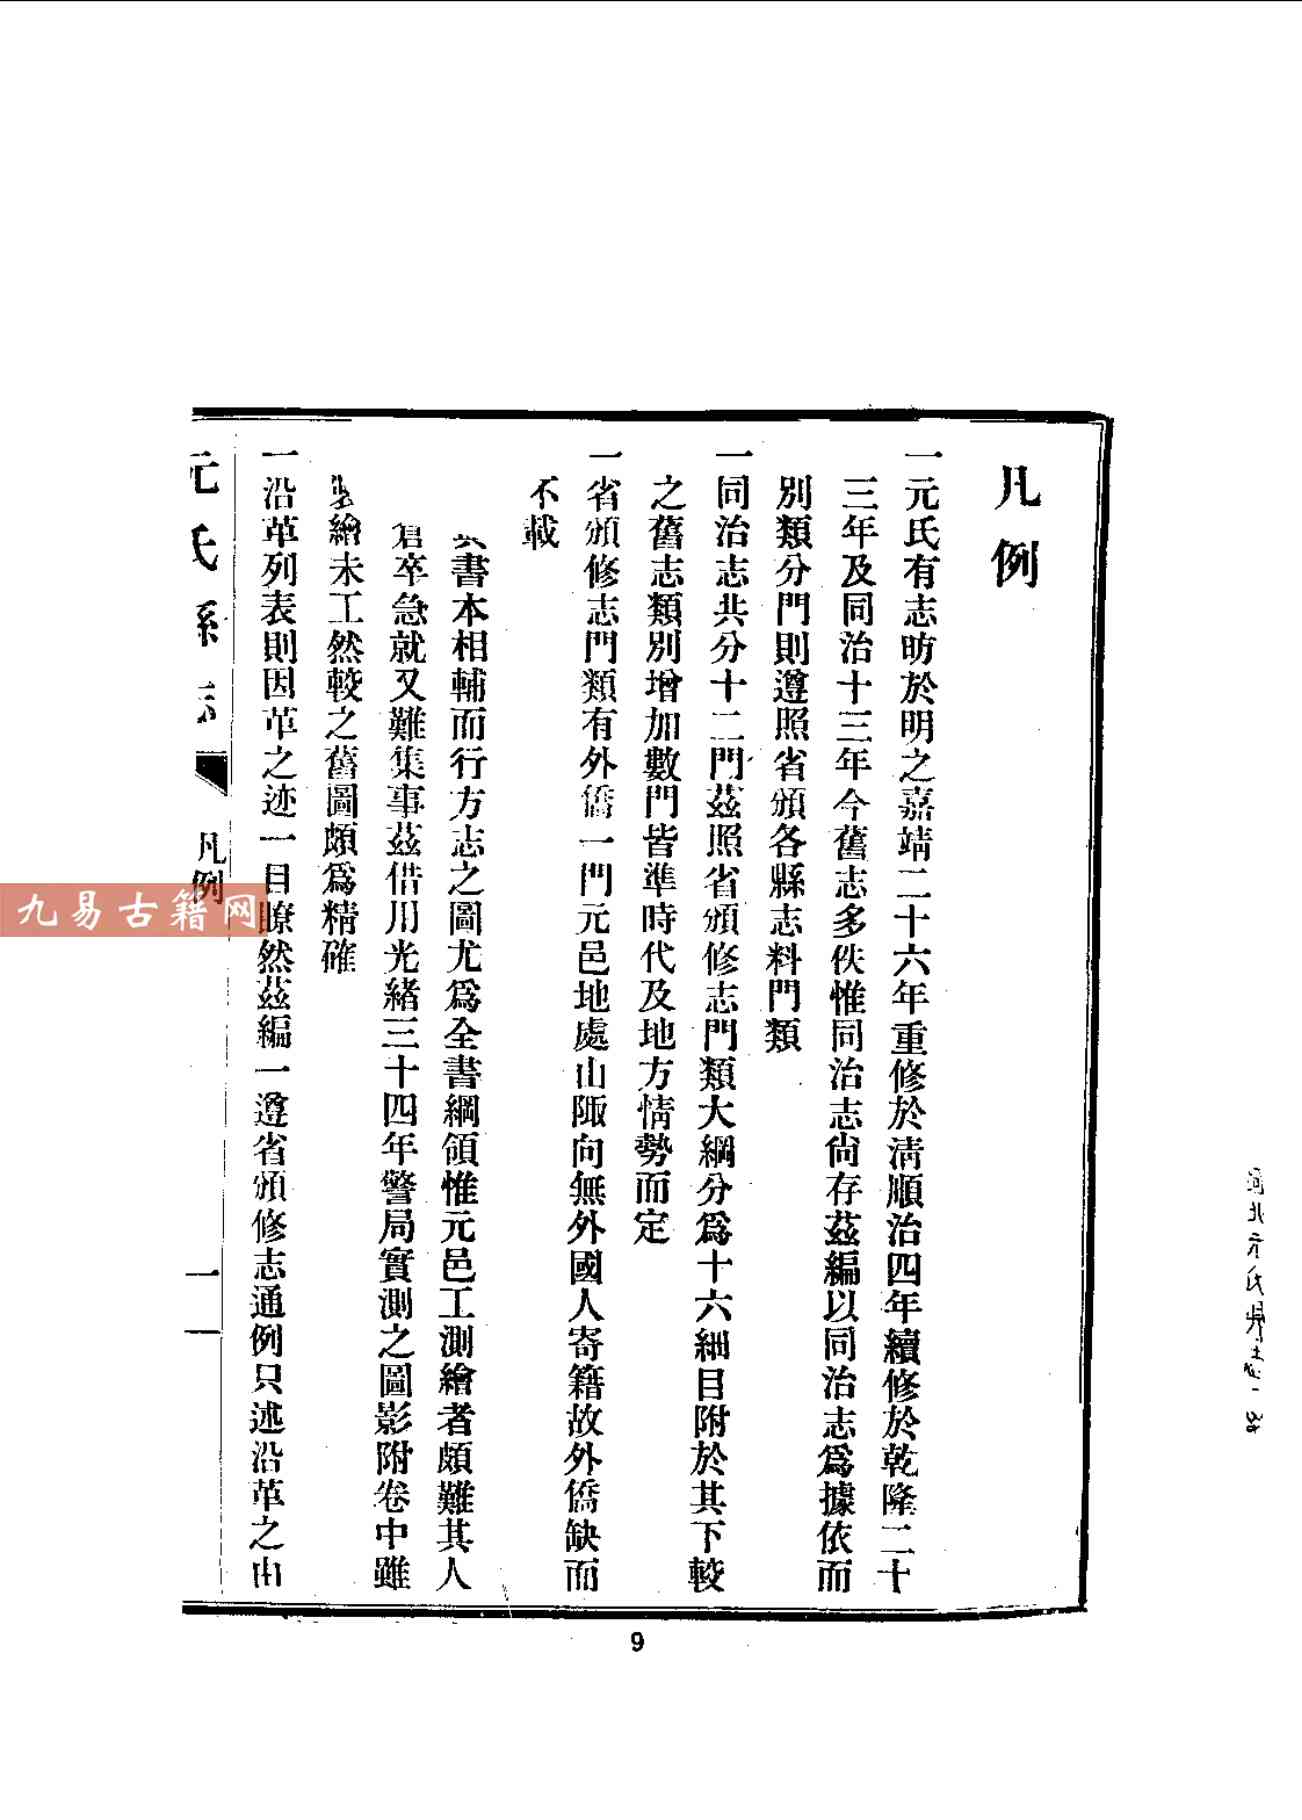 凡例
一元氏有志昉於明之嘉靖二十六年重修於淸順治四年續修於乾隆二十
三年及同治十三年今舊志多佚惟同治志尙存茲編以同治志爲據依而
別類分門則遵照省頒各縣志料門類
一同治志共分十二門茲照省頒修志門類大綱分爲十六細目附於其下較
之舊志類別增加數門皆準時代及地方情勢而定
一省頒修志門類有外僑一門元邑地處山陬向無外國人寄籍故外僑缺而
不載
書本相輔而行方志之圖尤爲全書綱領惟元邑工測繪者頗難其人
倉卒急就又難集事茲借用光緖三十四年警局實測之圖影附卷中雖
繪未工然較之舊圖頗爲精確
一沿革列表則因革之迹一目瞭然茲編一遵省頒修志通例只述沿革之由
元氏縣志
凡例
一
九易古籍网
9
河北元氏縣志一